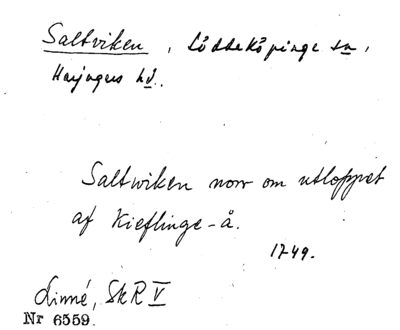 Saltviken, Löddeköpinge sn,
Harjagers hd.
Saltwiken norr om utloppet
af Kieflinge-å.
1749.
Linné, SkR V
Nr 6559.